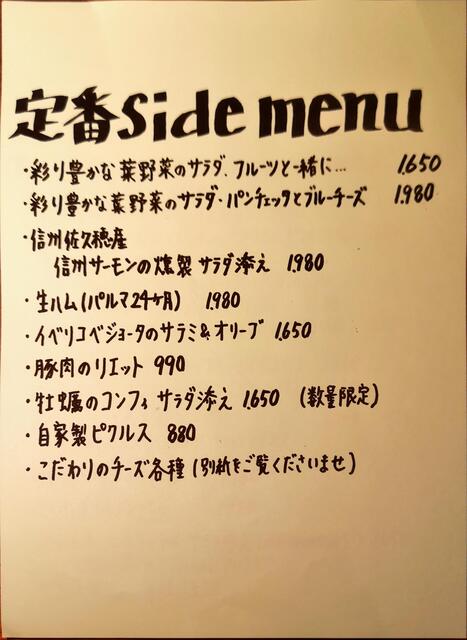 定番side menu
・彩り豊かな葉野菜のサラダ、フルーツと一緒に… 1.650
・彩り豊かな葉野菜のサラダ・パンチェッタとブルーチーズ 1.980
・信州佐久穂産
信州サーモンの燻製 サラダ添え 1.980
・生ハム(パルマ24ヶ月) 1.980
・イベリコベジョータのサラミ&オリーブ 1.650
・豚肉のリエット 990
・牡蠣のコンフィ サラダ添え 1.650 (数量限定)
・自家製ピクルス 880
・こだわりのチーズ各種(別紙をご覧くださいませ)